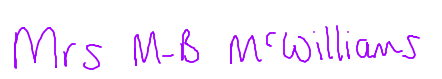 Mrs M-B McWilliams